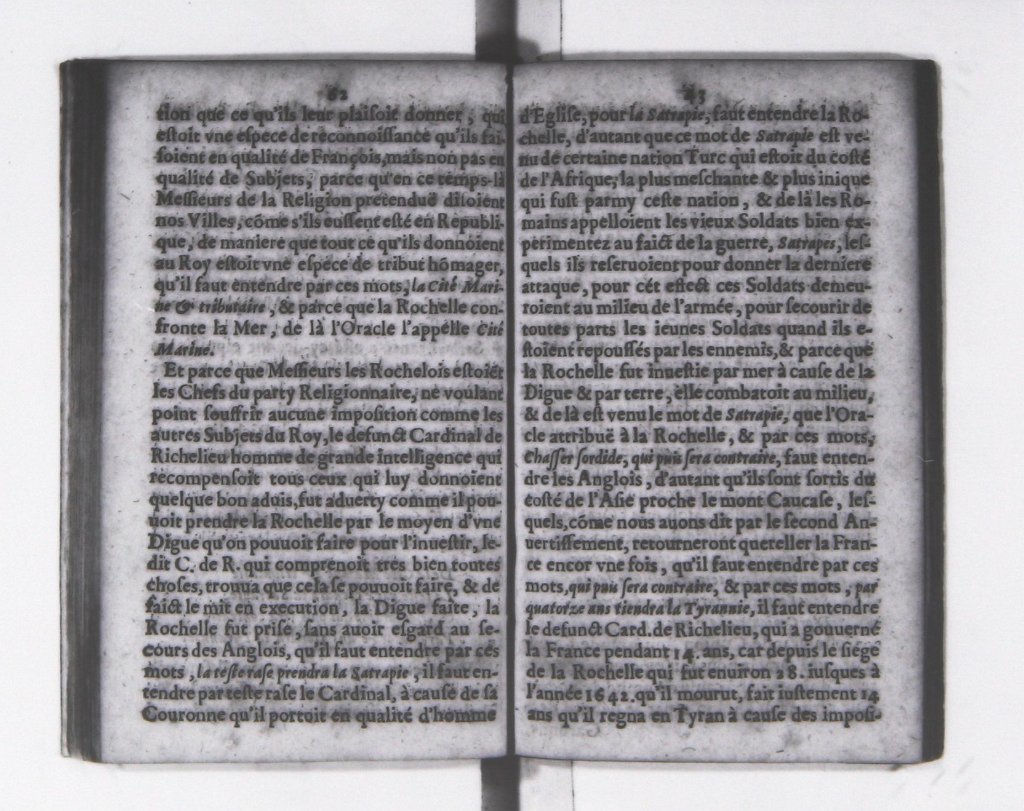 62
tion que ce qu'ils leur plaisoit donner, qui
estoit vne espece de reconnoissance qu'ils fai-
soient en qualité de François, mais non pas en
qualité de Subjets, parce qu'en ce temps-là
Messieurs de la Religion pretenduë disoient
nos Villes, cõme s'ils eussent esté en Republi-
que, de maniere que tout ce qu'ils donnoient
au Roy estoit vne espece de tribut hõmager,
qu'il faut entendre par ces mots, la Cité Mari-
ne & tributaire, & parce que la Rochelle con-
fronte la Mer, de là l'Oracle l'appelle Cité
Marine.
Et parce que Messieurs les Rochelois estoiẽt
les Chefs du party Religionnaire, ne voulant
point souffrir aucune imposition comme les
autres Subjets du Roy, le defunct Cardinal de
Richelieu homme de grande intelligence qui
recompensoit tous ceux qui luy donnoient
quelque bon aduis, fut aduerty comme il pou-
uoit prendre la Rochelle par le moyen d'vne
Digue qu'on pouuoit faire pour l'inuestir, le-
dit C. de R. qui comprenoit tres bien toutes
choses, trouua que cela se pouuoit faire, & de
faict le mit en execution, la Digue faite, la
Rochelle fut prise, sans auoir esgard au se-
cours des Anglois, qu'il faut entendre par ces
mots, la teste rase prendra la Satrapie, il faut en-
tendre par teste rase le Cardinal, à cause de sa
Couronne qu'il portoit en qualité d'homme
63
d'Eglise, pour la Satrapie, faut entendre la Ro-
chelle, d'autant que ce mot de Satrapie est ve-
nu de certaine nation Turc qui estoit du costé
de l'Afrique, la plus meschante & plus inique
qui fust parmy ceste nation, & de là les Ro-
mains appelloient les vieux Soldats bien ex-
perimentez au faict de la guerre, Satrapes, les-
quels ils reseruoient pour donner la derniere
attaque, pour cét effect ces Soldats demeu-
roient au milieu de l'armée, pour secourir de
toutes parts les ieunes Soldats quand ils e-
stoient repoussés par les ennemis, & parce que
la Rochelle fut inuestie par mer à cause de la
Digue & par terre, elle combatoit au milieu,
& de là est venu le mot de Satrapie, que l'Ora-
cle attribuë à la Rochelle, & par ces mots,
Chasser sordide, qui puis sera contraire, faut enten-
dre les Anglois, d'autant qu'ils sont sortis du
costé de l'Asie proche le mont Caucase, les-
quels, cõme nous auons dit par le second Ad-
uertissement, retourneront quereller la Fran-
ce encor vne fois, qu'il faut entendre par ces
mots, qui puis sera contraire, & par ces mots, par
quatorze ans tiendra la Tyrannie, il faut entendre
le defunct Card. de Richelieu, qui a gouuerné
la France pendant 14. ans, car depuis le siége
de la Rochelle qui fut enuiron 28. iusques à
l'année 1642. qu'il mourut, fait iustement 14
ans qu'il regna en Tyran à cause des imposi-